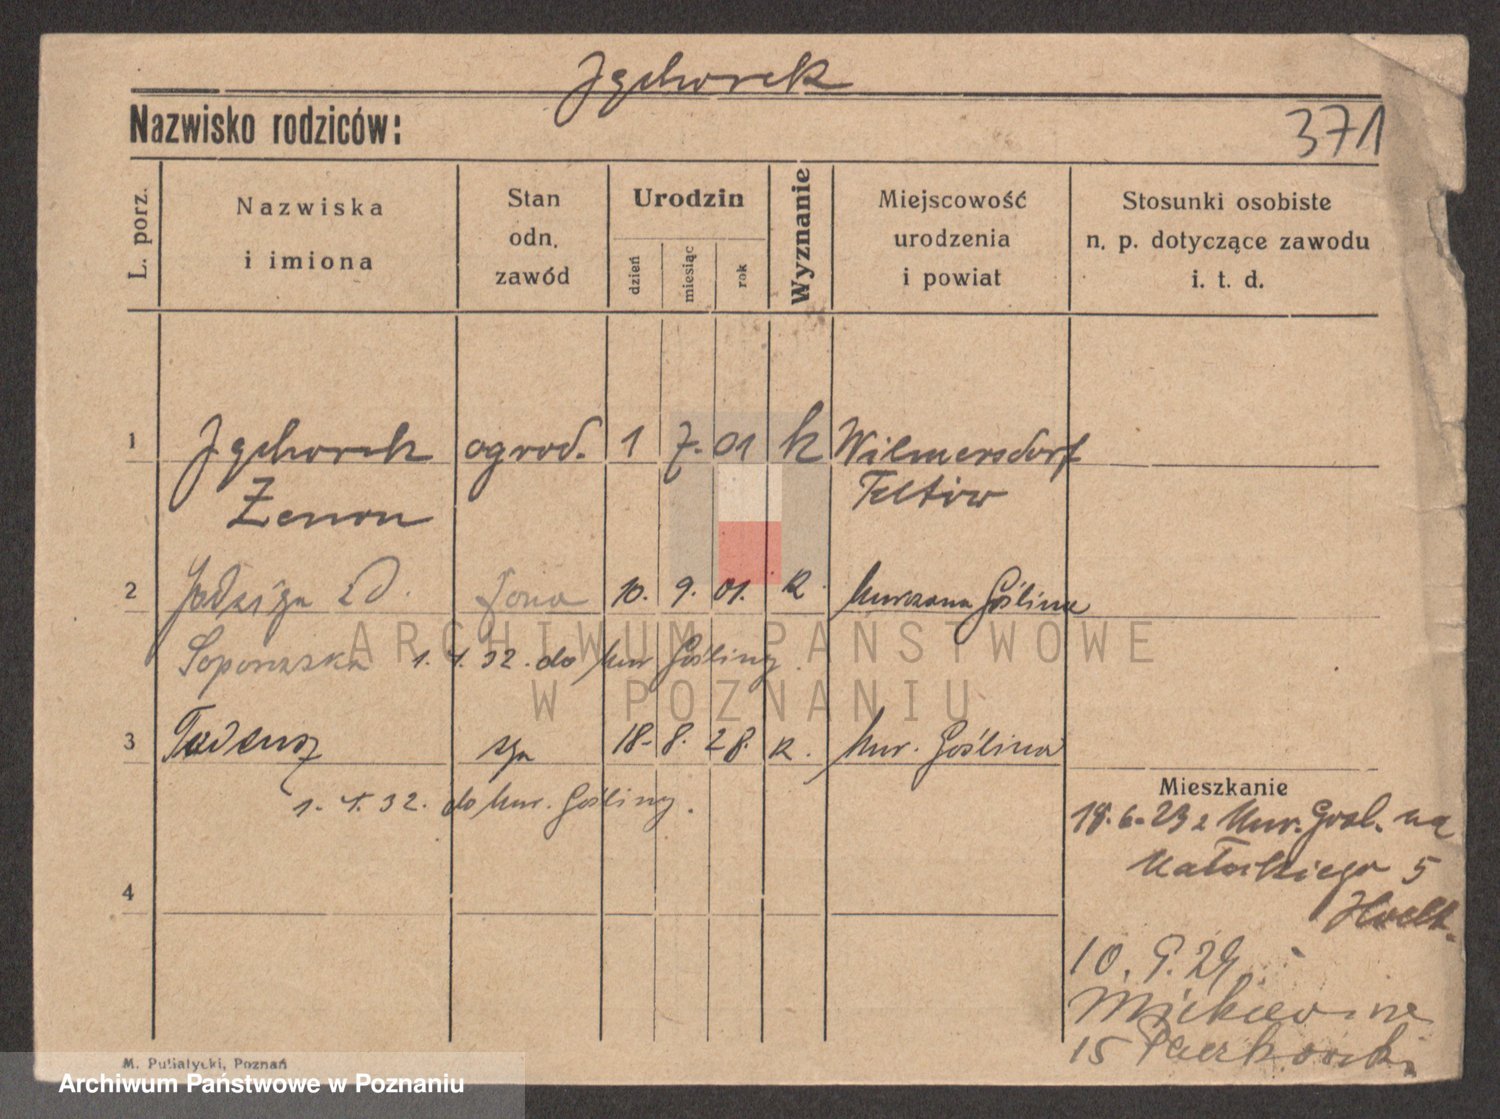 Jęchorek
Nazwisko rodziców:
371
L. porz.
Nazwiska
i imiona
Stan
odn.
zawód
Urodzin
dzień
miesiąc
rok
Wyznanie
Miejscowość
urodzenia
i powiat
Stosunki osobiste
n. p. dotyczące zawodu
i. t. d.
1 Jęchorek ogrod. 1 7. 01 k Wilmersdorf
Zenon Teltow
2 Jadwiga żona 10. 9. 01. k. Murowana Goślina
1. 1. 32. do Mur. Gośliny.
3 Tadeusz syn 18. 8. 28. k. Mur. Goślina
1. 1. 32. do Mur. Gośliny.
Mieszkanie
18. 6. 29 z Mur. Gosl. na
5
4
10. 9. 29.
15
M. Pułiałycki, Poznań
ARCHIWUM PAŃSTWOWE
W POZNANIU
Archiwum Państwowe w Poznaniu